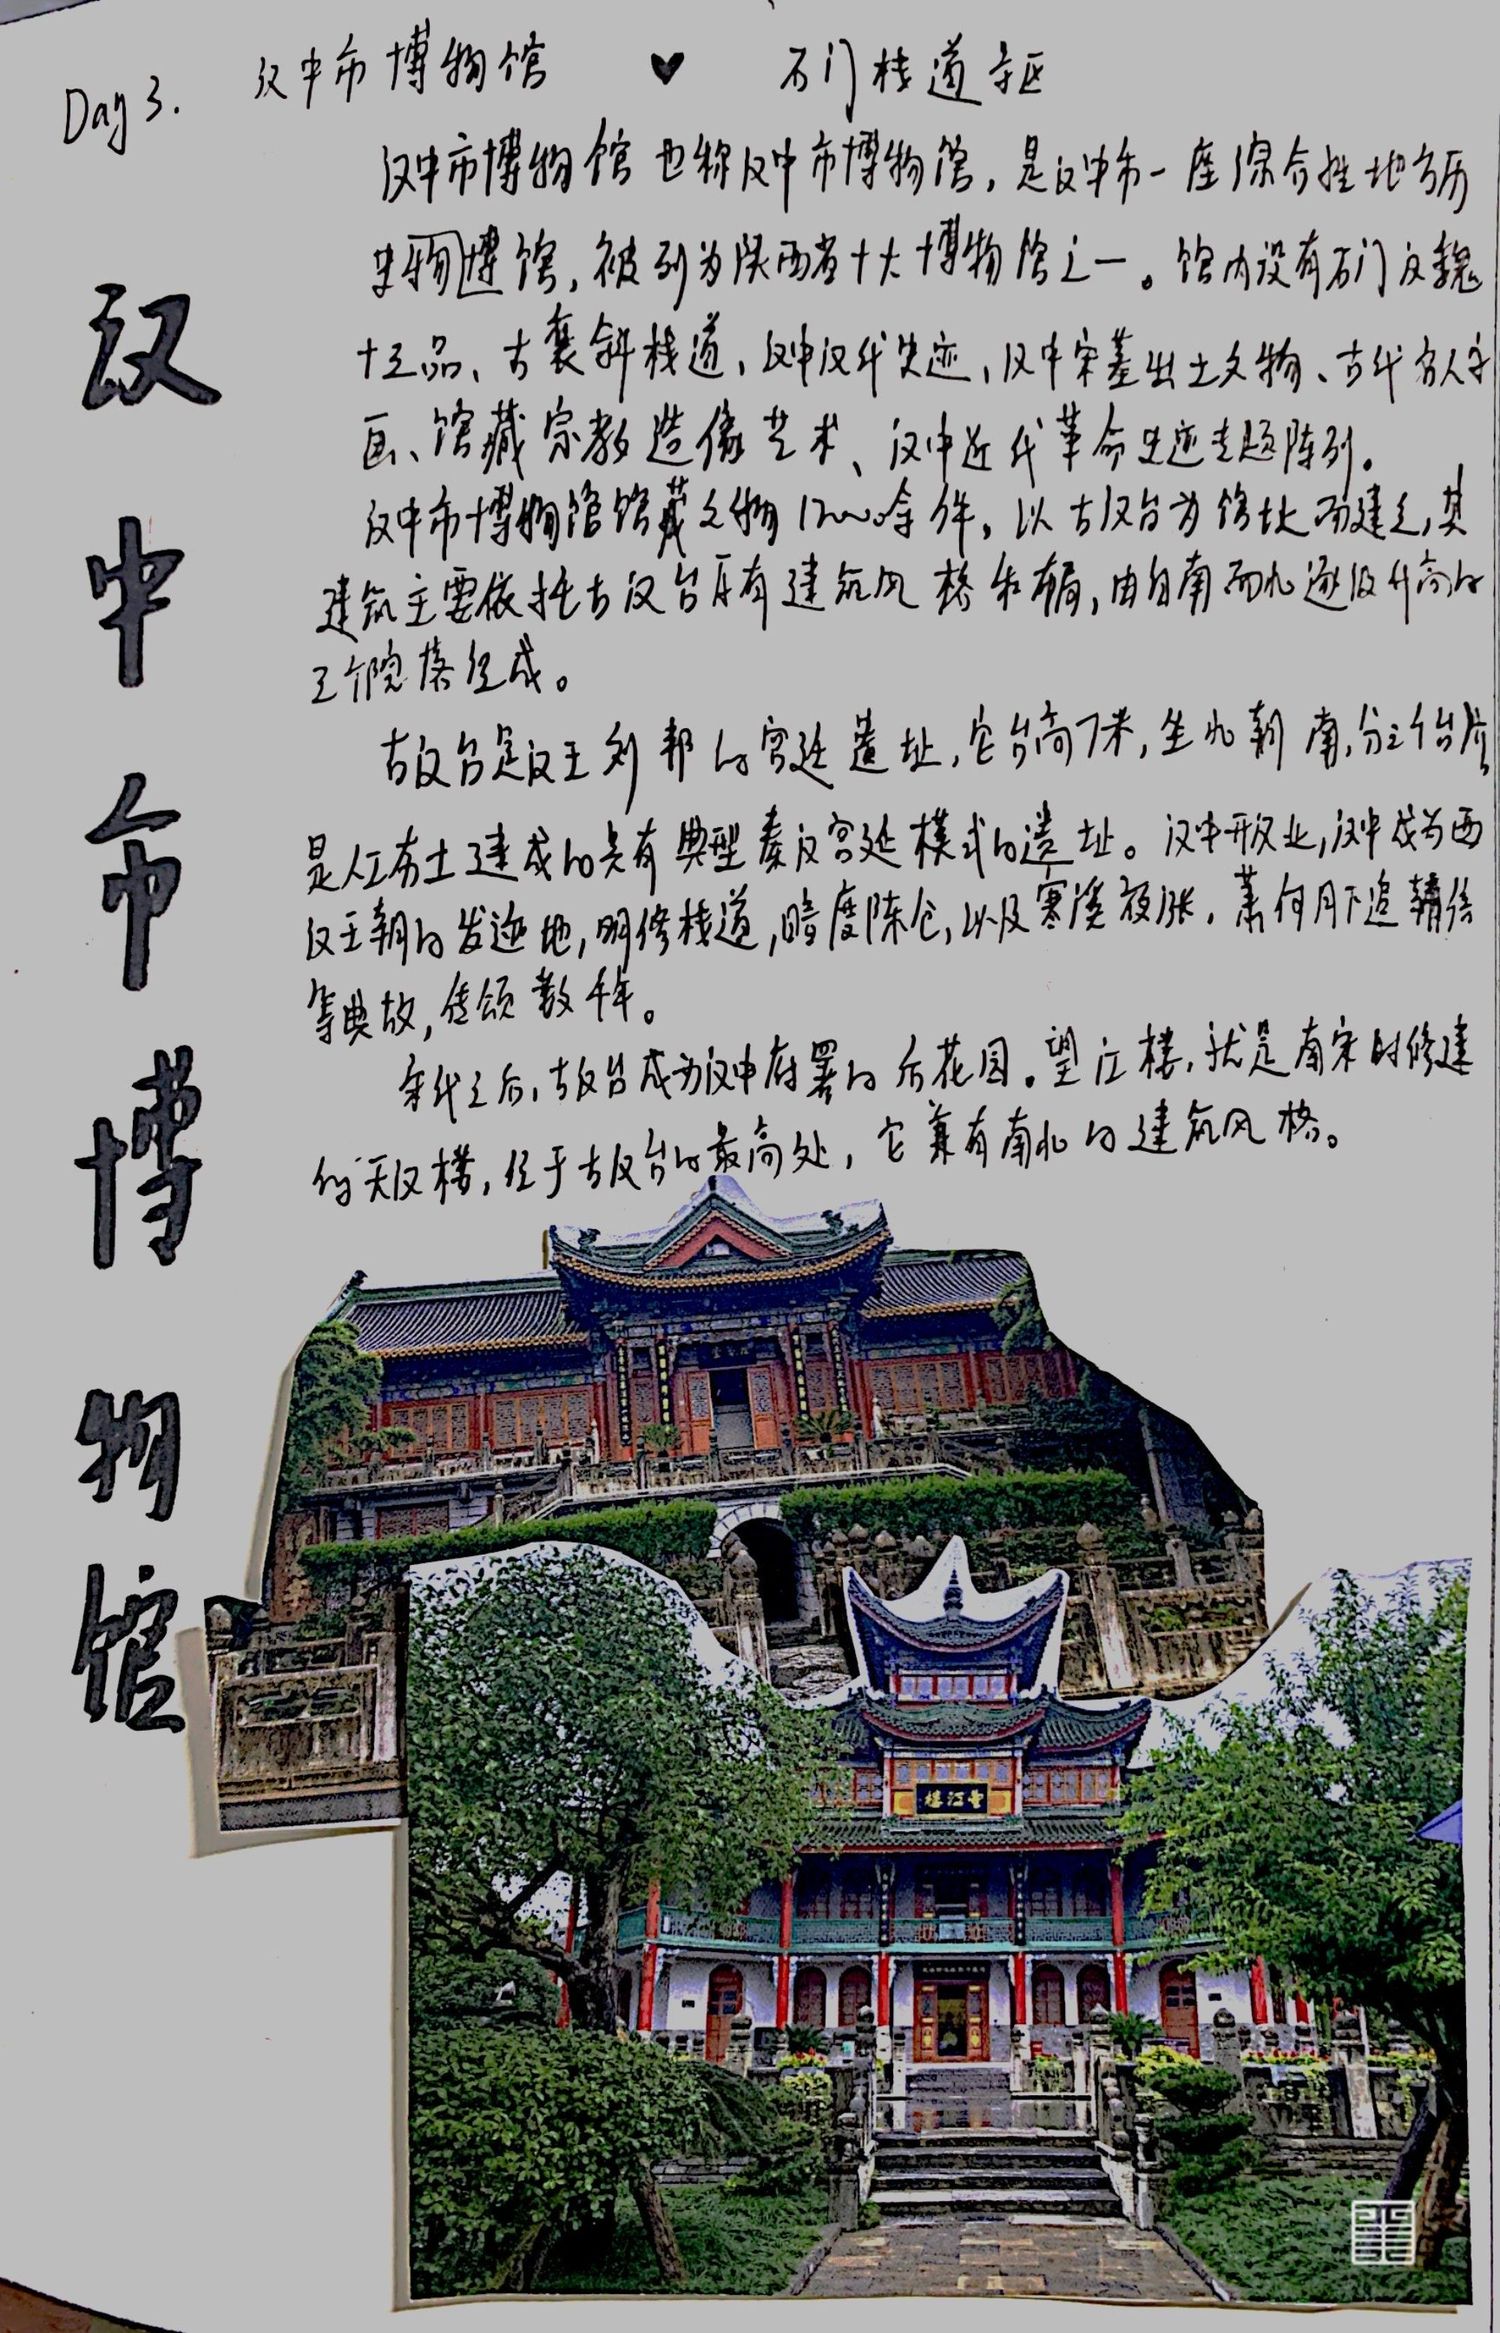 Day 3. 汉中市博物馆 ♥ 石门栈道景区
汉中市博物馆
汉中市博物馆也称汉中市博物馆，是汉中市一座综合性地方历
史博物馆，被列为陕西省十大博物馆之一。馆内设有石门汉魏
十三品、古褒斜栈道、汉中汉代史迹、汉中宋墓出土文物、古代名人字
画、馆藏宗教造像艺术、汉中近代革命史迹专题陈列。
汉中市博物馆馆藏文物12000余件，以古汉台为馆址而建立，其
建筑主要依托古汉台原有建筑风格和布局，由自南而北逐级升高的
三个院落组成。
古汉台是汉王刘邦的宫廷遗址，它台高7米，坐北朝南，分三个台阶
是人工夯土建成的具有典型秦汉宫廷模式的遗址。汉中开汉业，汉中成为西
汉王朝的发迹地，明修栈道，暗度陈仓，以及寒溪夜涨，萧何月下追韩信
等典故，传颂数千年。
宋代之后，古汉台成为汉中府署的后花园。望江楼，就是南宋时修建
的天汉楼，位于古汉台的最高处，它兼有南北的建筑风格。
望江楼